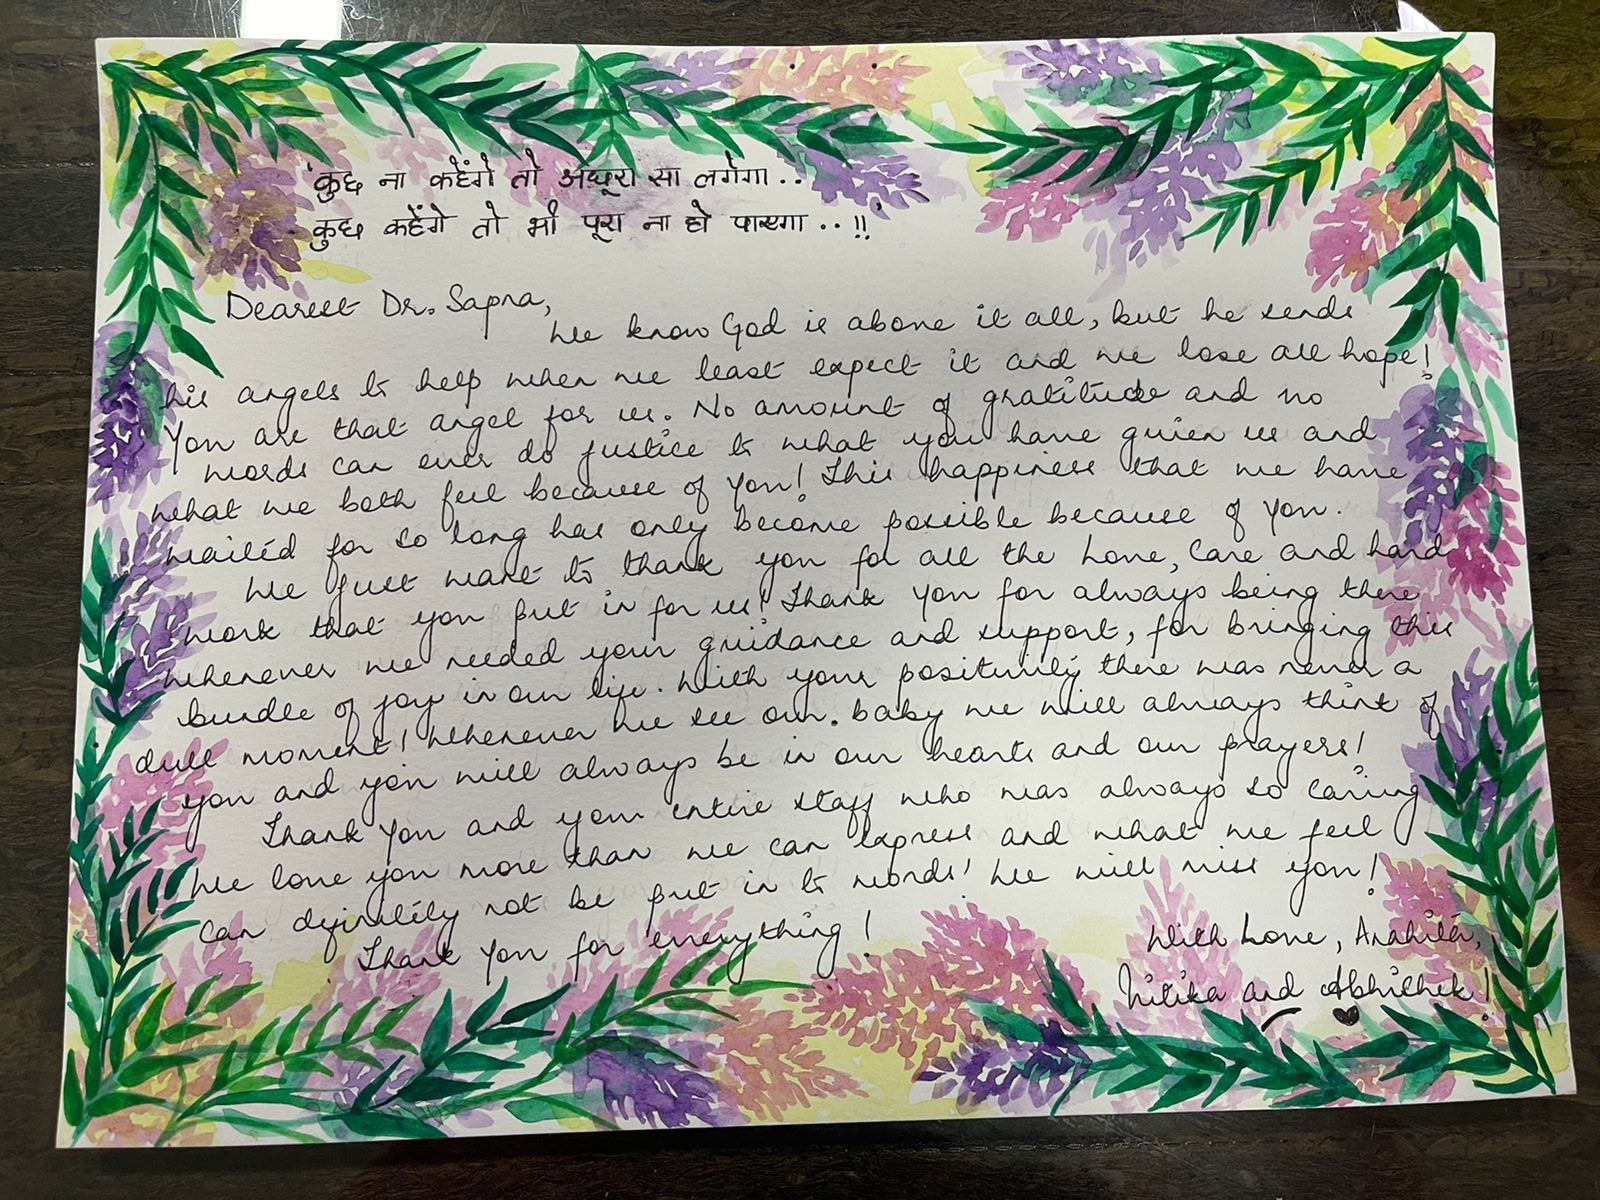 'कुछ ना कहेंगे तो अधूरा सा लगेगा..
कुछ कहेंगे तो भी पूरा ना हो पाएगा..!!'
Dearest Dr. Sapra,
We know God is above it all, but he sends
his angels to help when we least expect it and we lose all hope!
You are that angel for us. No amount of gratitude and no
words can ever do justice to what you have given us and
what we both feel because of you! This happiness that we have
waited for so long has only become possible because of you.
We just want to thank you for all the Love, Care and hard
work that you put in for us! Thank you for always being there
whenever we needed your guidance and support, for bringing this
bundle of joy in our life. With your positivity there was never a
dull moment! Whenever we see our baby we will always think of
you and you will always be in our hearts and our prayers!
Thank you and your entire staff who was always so caring
We love you more than we can express and what we feel
can definitely not be put in to words! We will miss you!
Thank You for everything!
With Love,
Nitika and Abhishek!